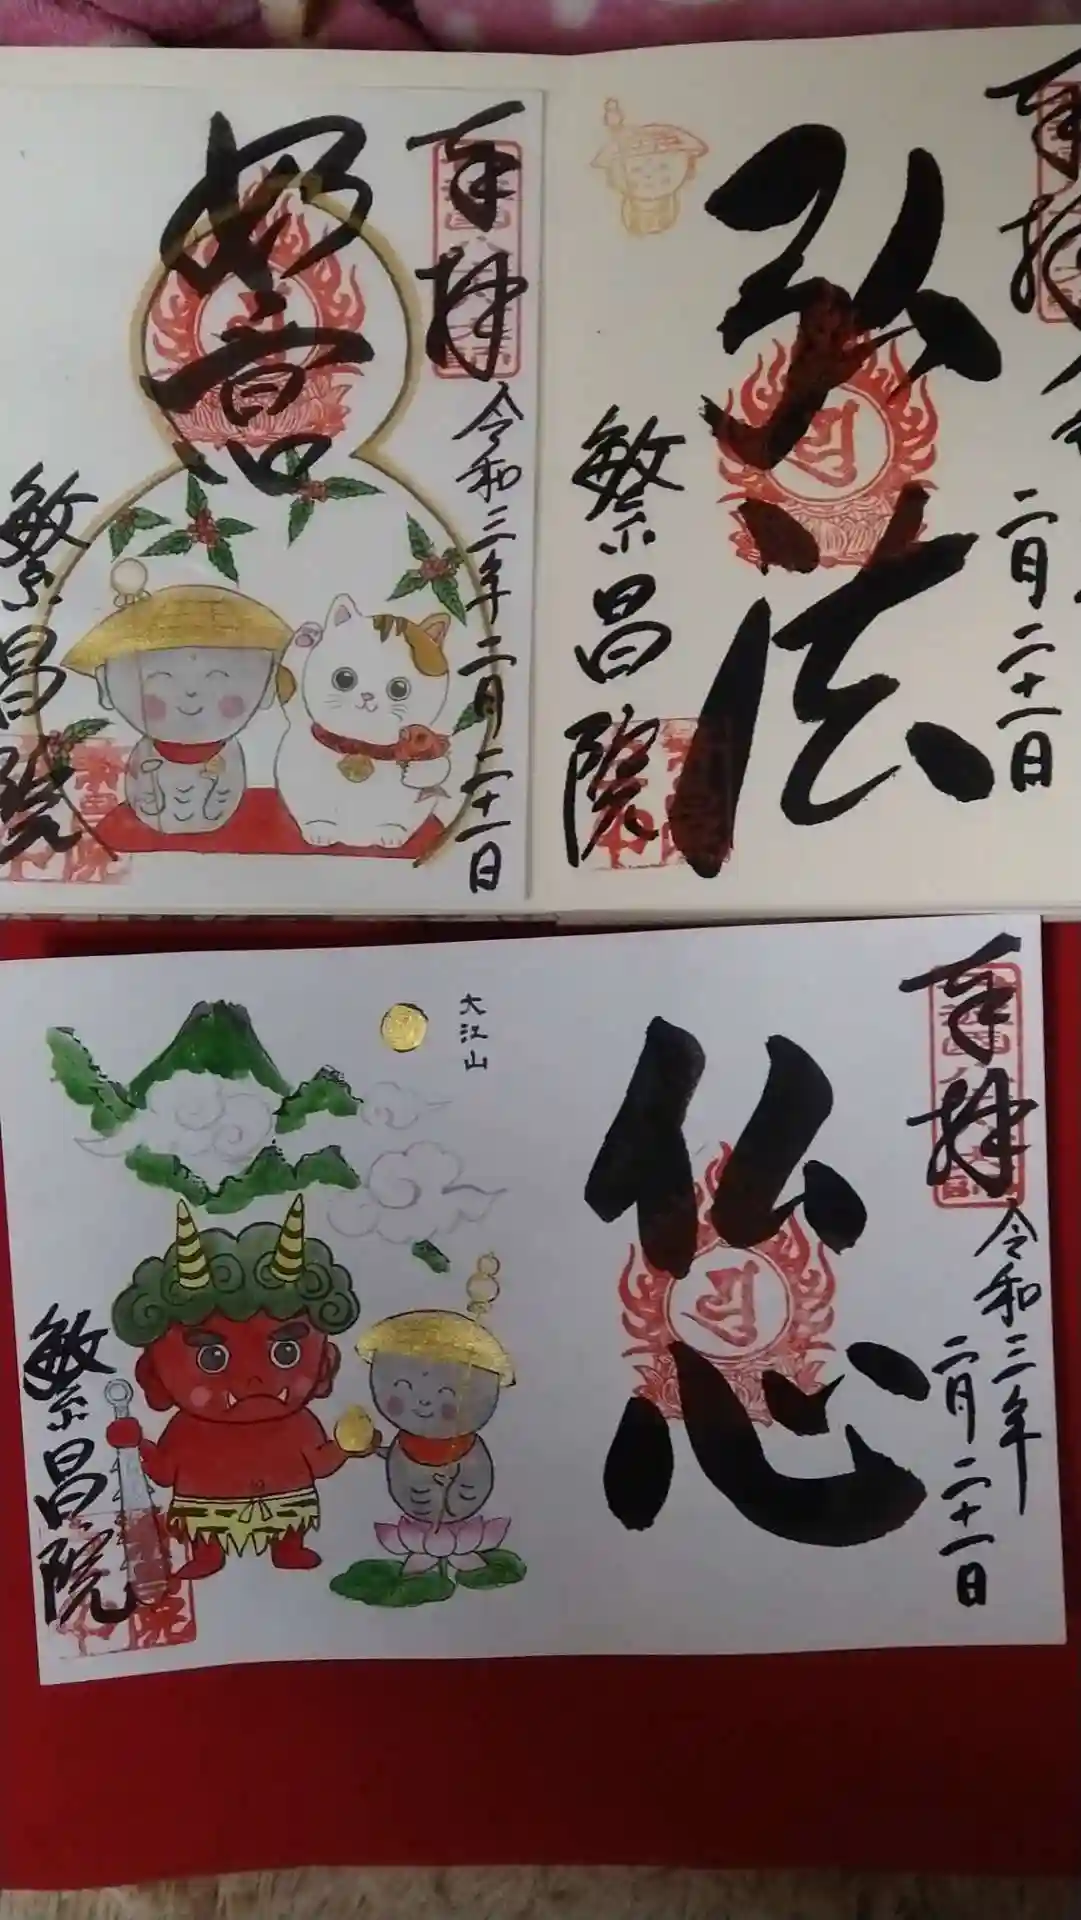 奉拝
令和三年二月二十一日
如意
繁昌院
奉拝
二月二十一日
弘法
繁昌院
奉拝
令和三年
二月二十一日
仏心
大江山
繁昌院